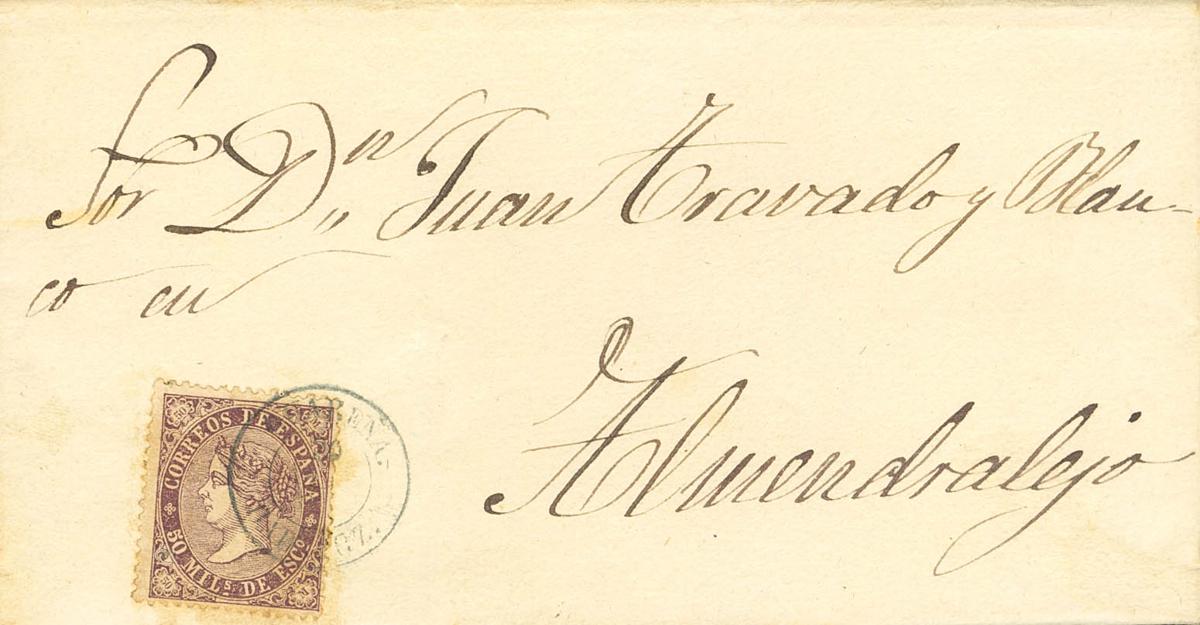 Sor Dn Juan Travado y Blan-
co en
Almendralejo
CORREOS DE ESPAÑA
50 MILS DE ESCO
50